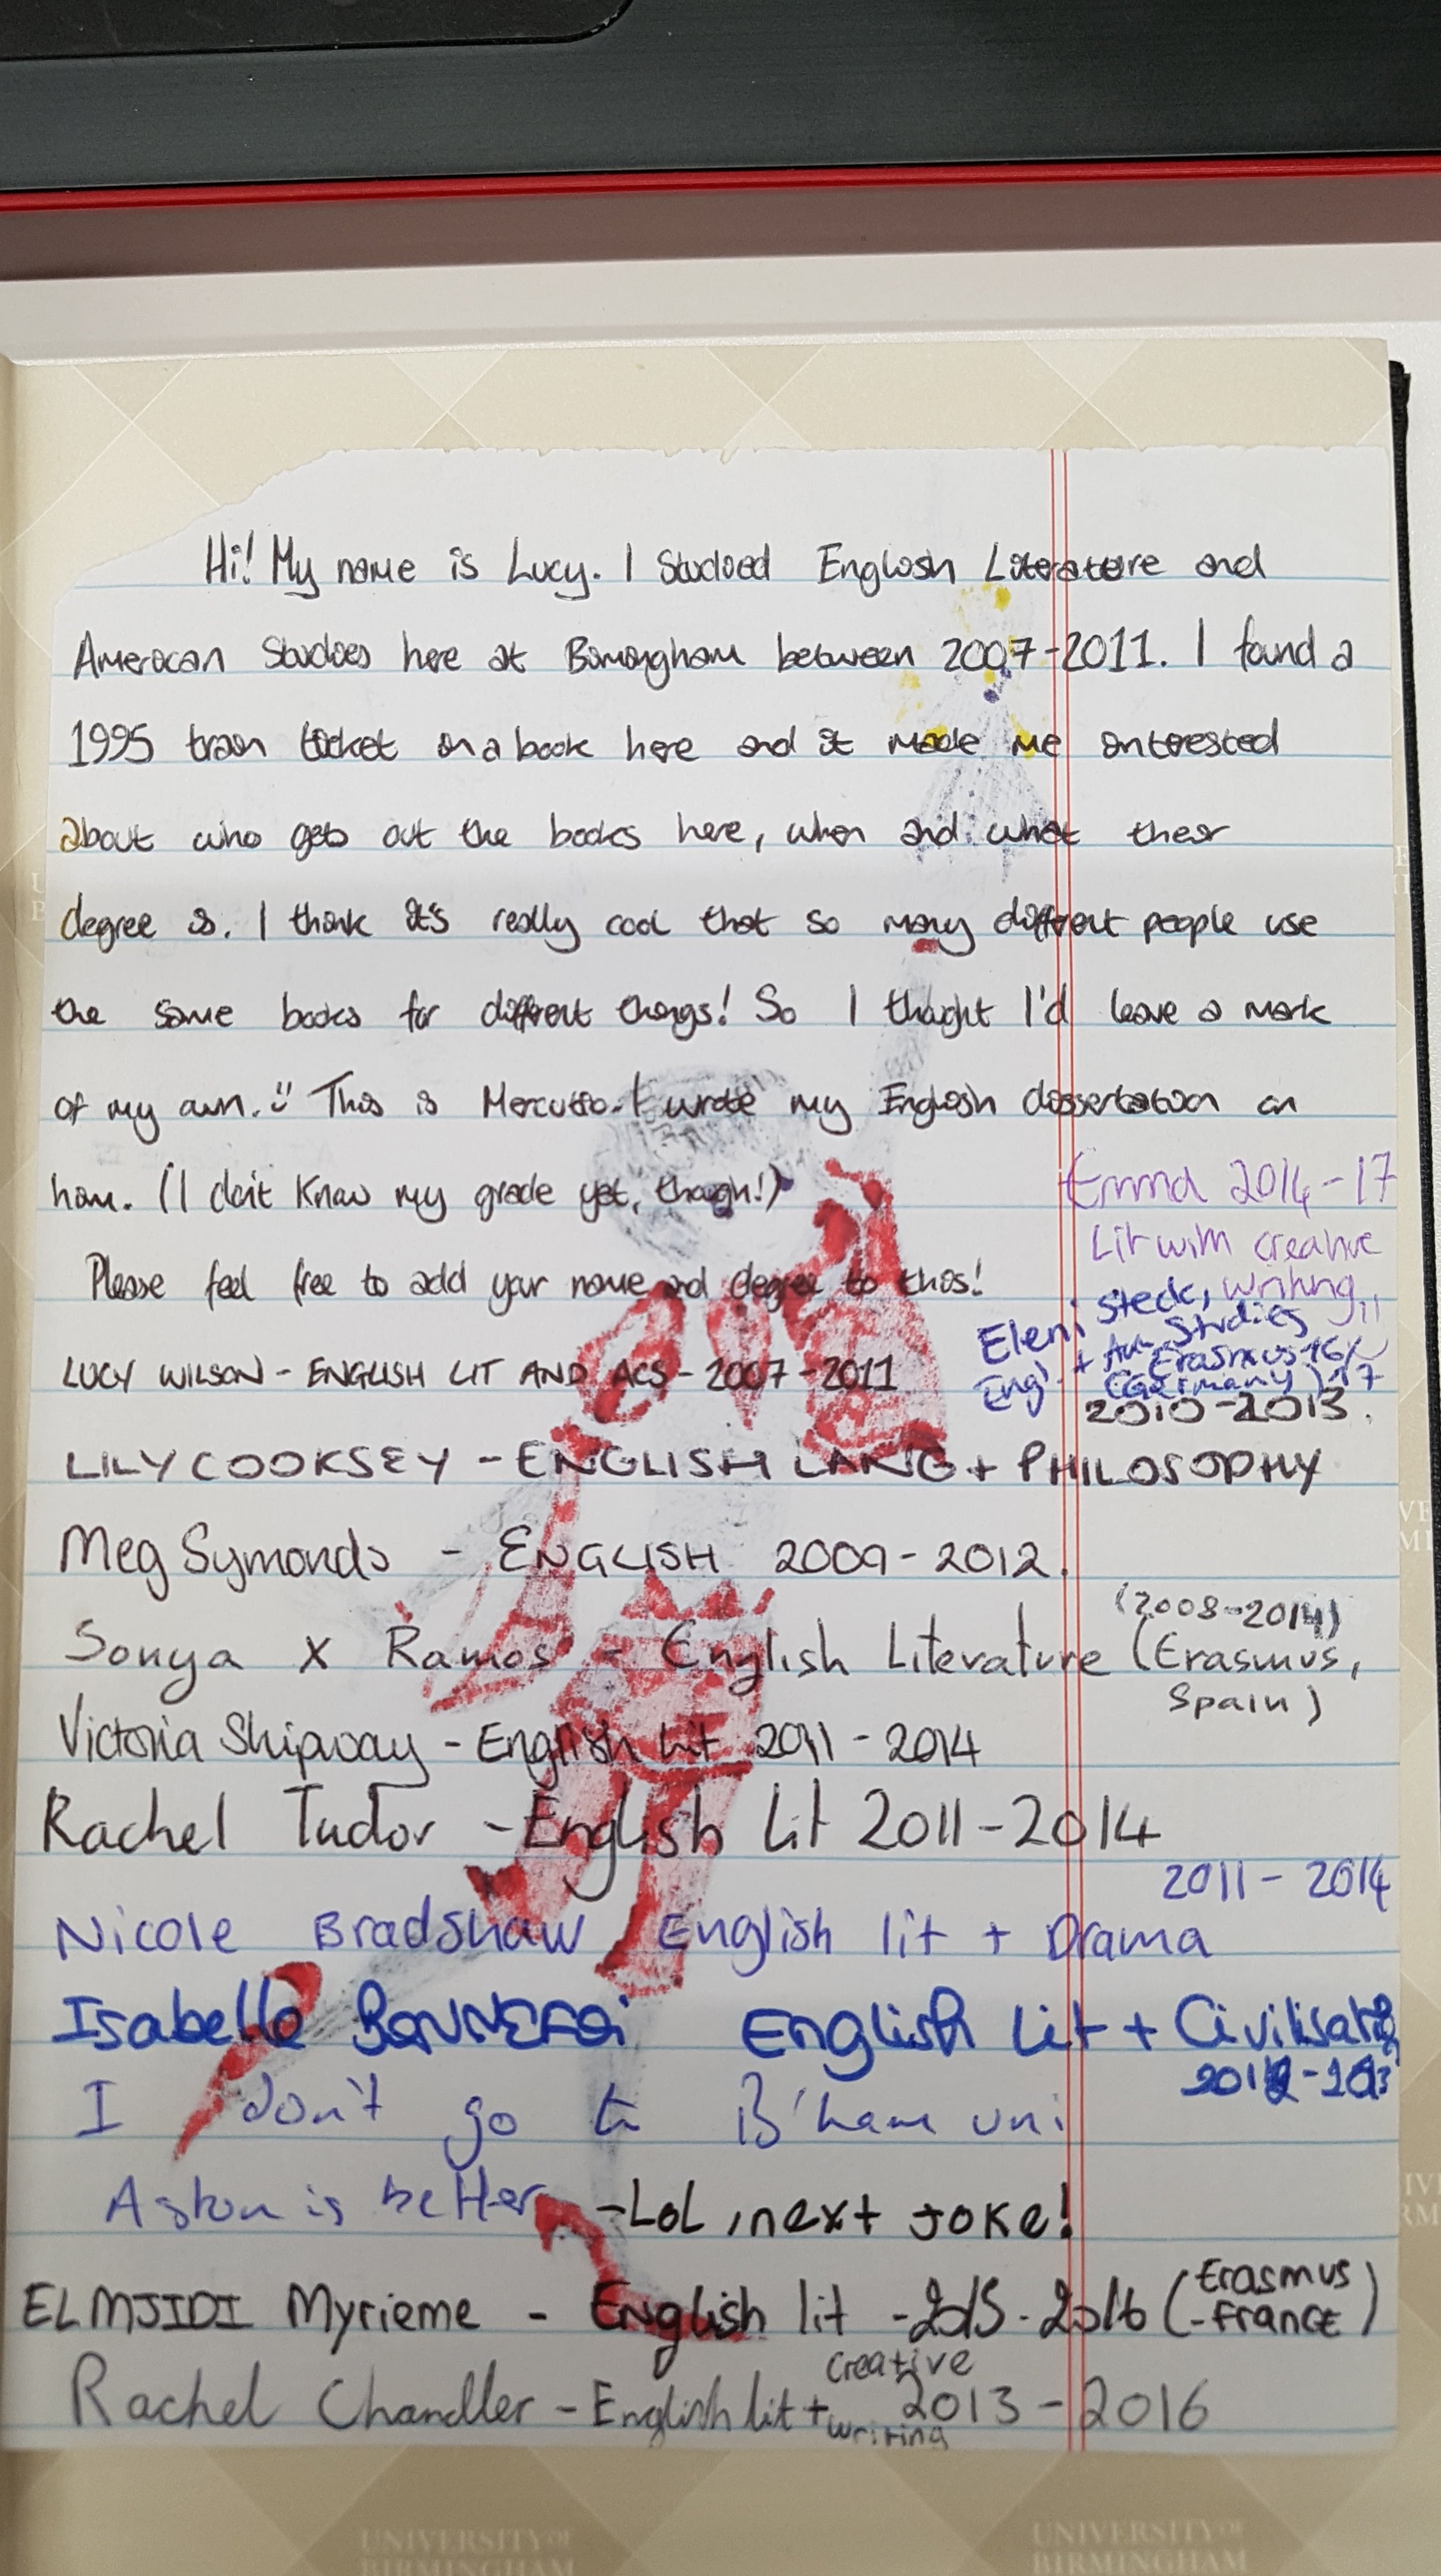 Hi! My name is Lucy. I studied English Literature and
American Studies here at Birmingham between 2007-2011. I found a
1995 train ticket in a book here and it made me interested
about who gets out the books here, when and what their
degree is. I think it's really cool that so many different people use
the same books for different things! So I thought I'd leave a mark
of my own. This is Mercutio. I wrote my English dissertation on
him. (I don't know my grade yet, though!)
Emma 2014-17
Lit with creative
writing
Please feel free to add your name and degree to this!
Eleni Steck,
Engl + Am Studies
Erasmus 16/17
(Germany)
LUCY WILSON - ENGLISH LIT AND ACS - 2007-2011
2010-2013.
LILY COOKSEY - ENGLISH LANG + PHILOSOPHY
Meg Symonds - ENGLISH 2009-2012.
(2008-2014)
Sonya X Ramos - English Literature (Erasmus,
Spain)
Victoria Shipway - English Lit 2011-2014
Rachel Tudor - English Lit 2011-2014
2011-2014
Nicole Bradshaw English lit + Drama
Isabelle BONNEFOi English Lit + Civilisation
I don't go to B'ham uni
Aston is better - LOL, next joke!
ELMJIDI Myrieme - English lit - 2015-2016 (Erasmus
-France)
Rachel Chandler - English lit + creative writing 2013-2016
UNIVERSITY OF
BIRMINGHAM
UNIVERSITY OF
BIRMINGHAM